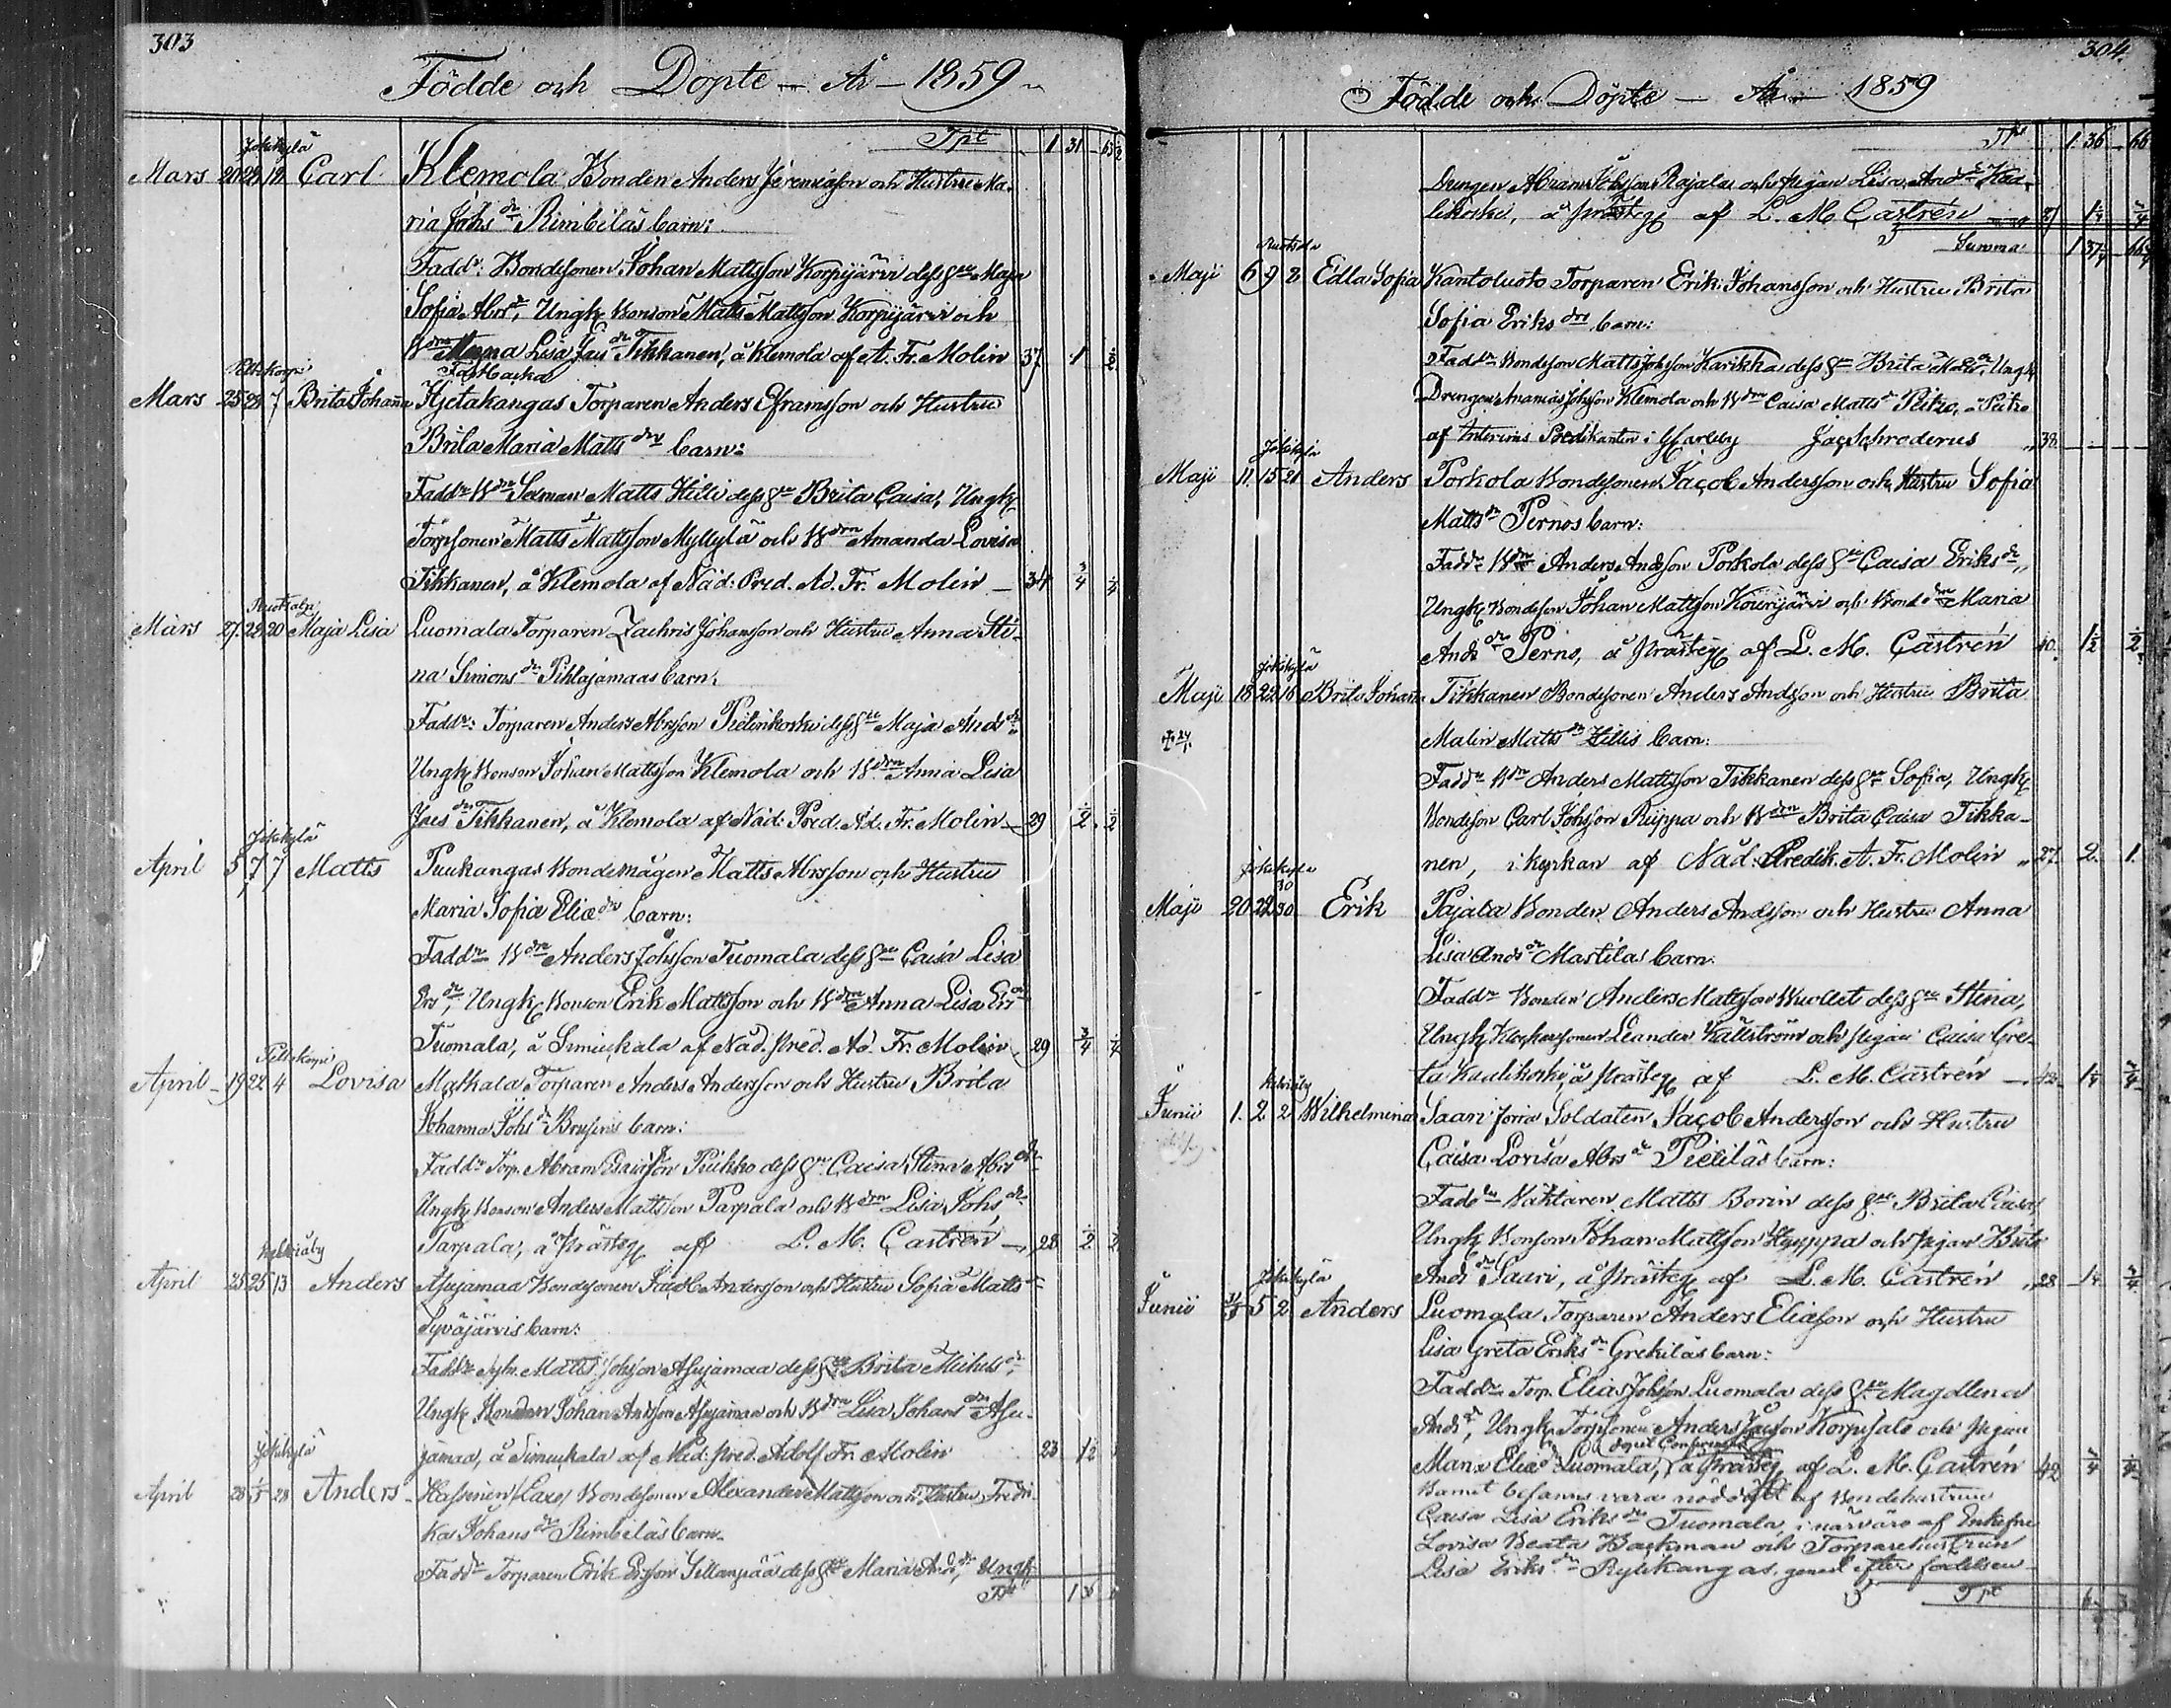 303
Födde och Döpte — År — 1859
Tpt 1 31
Jokikylä
Mars 20 24 12 Carl Klemola Bonden Anders Jeremiasson och Hustru Ma-
ria Johs dr Rimbiläs barn:
Faddr: Bondesonen Johan Mattsson Korpijärvi dess hu Maja
Sofia Abr dr, Ungk Bonson Matts Mattsson Korpijärvi och
B drn Anna Lisa Jac dr Tikkanen, å Klemola af A. Fr. Molin 37 1 1/2
Mars 25 29 7 Brita Johanna Hjetakangas Torparen Anders Eframsson och Hustru
Brita Maria Matts drs barn:
Faddr B dn Sexman Matts Hilli dess hu Brita Caisa, Ungk
Torpsonen Matts Mattsson Myllylä och B drn Amanda Lovisa
Tikkanen, å Klemola af Näd: Pred. Ad. Fr. Molin — 34 3/4 1/4
Mars 27 28 20 Maja Lisa Luomala Torparen Zachris Johansson och Hustru Anna Sti-
na Simons dr Pihlajamaas barn.
Faddr: Torparen Anders Abrsson Pietinkoski dess hu Maja And dr
Ungk Bonson Johan Mattsson Klemola och B drn Anna Lisa
Jacs dr Tikkanen, å Klemola af Näd. Pred. Ad. Fr. Molin — 29 1/2 1/2
Jokikylä
April 5 7 7 Matts Puukangas Bondemågen Matts Abrsson och Hustru
Maria Sofia Eliæ drs barn:
Faddr B drn Anders Johsson Tuomala dess hu Caisa Lisa
Ers dr, Ungk Bonson Erik Mattsson och B drn Anna Lisa Ers dr
Tuomala, å Simukala af Näd. pred. Ad. Fr. Molin 29 3/4 1/4
April 19 22 4 Lovisa Matkala Torparen Anders Andersson och Hustru Brita
Johanna Johs dr Brusiins barn:
Faddr Torp. Abram Isaksson Puikko dess hu Caisa Stina Abrs dr
Ungk Bonson Anders Mattsson Parpala och B drn Lisa Johs dr
Parpala, å Prästeg af L. M. Castrén — 28 1/2 1/2
Kelviåby
April 25 25 13 Anders Asujamaa Bondesonen Jacob Andersson och Hustru Sofia Matts dr
Syväjärvis barn:
Faddr Sytn. Matts Johsson Asujamaa dess hu Brita Michels dr
Ungk Bondson Johan Andsson Asujamaa och B drn Lisa Johans drn Asu-
jamaa, å Simukala af Näd: pred. Adolf Fr. Molin 23 1/2
Jokikylä
April 28 1/5 28 Anders Hassinen /Laxo/ Bondesonen Alexander Mattsson och Hustru Fredri-
ka Johans dr Rimbiläs barn.
Faddr Torparen Erik Ersson Sillanpää dess hu Maria And dr, Ungk
Tpt 1 36
304.
Födde och Döpte — År — 1859
Tpt 1 36 66
Drengen Abram Johsson Rajala och Pigan Lisa And dr Kau-
likoski, å Prästeg af L. M. Castrén 27 1/4 3/4
Summa
Ruotsala
Maji 6 9 8 Edla Sofia Kantoluoto Torparen Erik Johansson och Hustru Brita
Sofia Eriks drs barn:
Faddr Bondeson Matts Johsson Karikka dess hu Brita Matts dr, Ungk
Drengen Ananias Johsson Klemola och B drn Caisa Matts dr Peitso, å Peitso
af Interims Predikanten i GCarleby Jac Schroderus 38 — —
Jokikylä
Maji 11 15 21 Anders Porkola Bondesonen Jacob Andersson och Hustru Sofia
Matts dr Pernos barn:
Faddr B dn Anders Andsson Porkola dess hu Caisa Eriks dr,
Ungk Bondeson Johan Mattsson Kourijärvi och Bond drn Maria
Ands dr Perno, å Prästeg af L. M. Castrén 40 1/2
Jokikylä
Maji 18 22 16 Brita Johan. Tikkanen Bondesonen Anders Andsson och Hustru Brita
Malin Matts dr Hillis barn:
Faddr B dn Anders Mattsson Tikkanen dess hu Sofia, Ungk
Bondeson Carl Johsson Riippa och B drn Brita Caisa Tikka-
nen, i kyrkan af Näd: Predik. A. Fr. Molin 27 2 1
Jokikylä
Maji 20 22 30 Erik Pajala Bonden Anders Andsson och Hustru Anna
Lisa Ands dr Martilas barn.
Faddr Bonden Anders Mattsson Wuolleti dess hu Stina,
Ungk Klockarsonen Leander Källström och pigan Caisa Gre-
ta Kaulikoski, å Prästeg af L. M. Castrén — 42 1/4 3/4
Kelviåby
Junii 1 2 2 Wilhelmina Saari förra Soldaten Jacob Andersson och Hustru
Caisa Lovisa Abrs dr Pieliläs barn:
Faddr Väktaren Matts Borin dess hu Brita Caisa,
Ungk Bonson Johan Mattsson Hyyppä och pigan Brita
Ands dr Saari, å Prästeg af L. M. Castrén 28 1/4 3/4
Jokikylä
Junii 31/5 5 2 Anders Luomala Torparen Anders Eliasson och Hustru
Lisa Greta Eriks dr Grekiläs barn:
Faddr Torp. Elias Johsson Luomala dess hu Magdlena
Ands dr, Ungk Torpsonen Anders Jacsson Korpisalo och Pigan
Maria Eliæ dr Luomala, å Prästeg af L. M. Castrén 42 3/4 1/4
dopet Confirmerat
Barnet befanns vara nöddöpt af Bondehustrun
Caisa Lisa Eriks dr Tuomala, i närvaro af Enkefru
Lovisa Beata Backman och Torparehustrun
Lisa Eriks dr Rytikangas, genast efter födelsen
Tpt 6